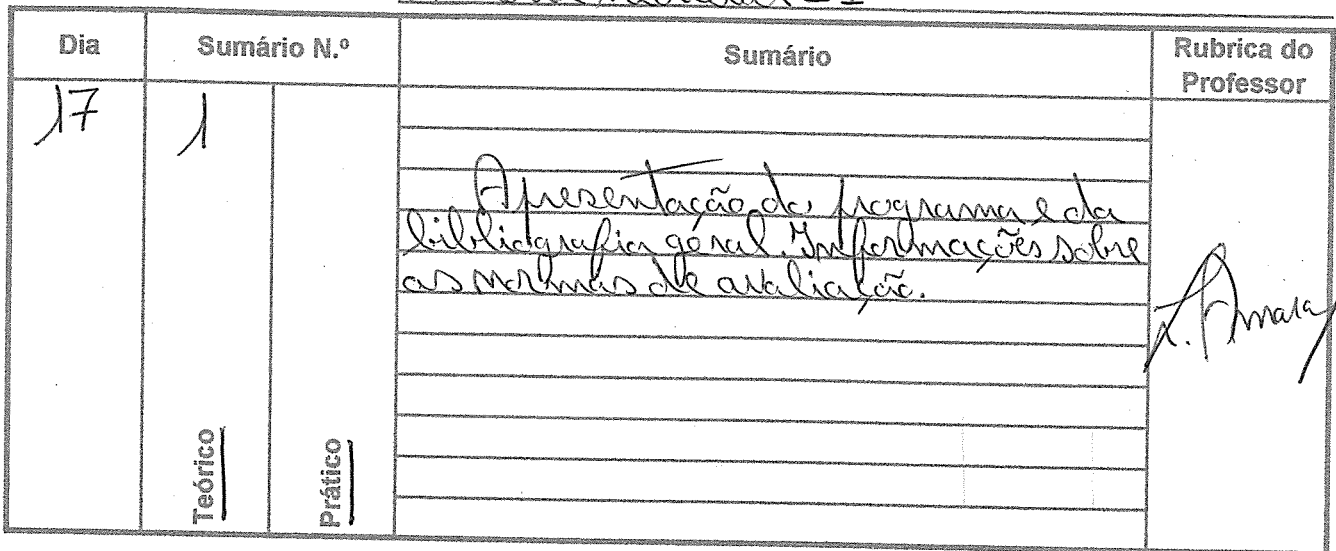 Dia Sumário N.º Sumário Rubrica do Professor
17 1
Apresentação do programa e da
bibliografia geral. Informações sobre
as normas de avaliação.
Teórico Prático